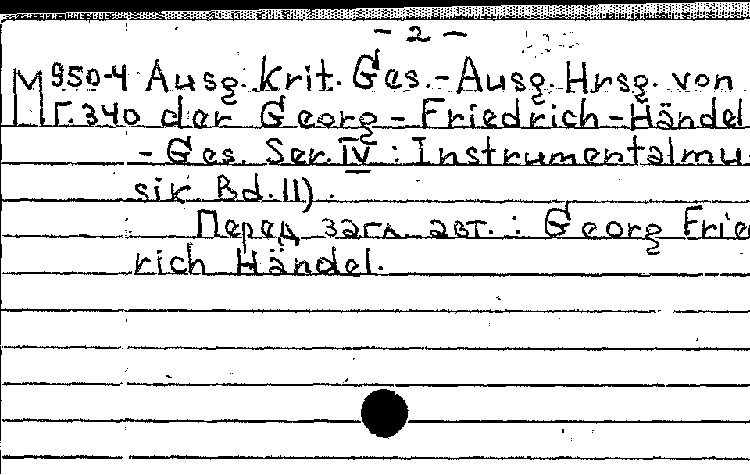 - 2 -
М 950-4 Ausg. Krit. Ges.-Ausg. Hrsg. von
Г.340 der Georg-Friedrich-Händel
-Ges. Ser. IV : Instrumentalmu-
sik Bd. 11).
Перед загл. авт. : Georg Fried
rich Händel.